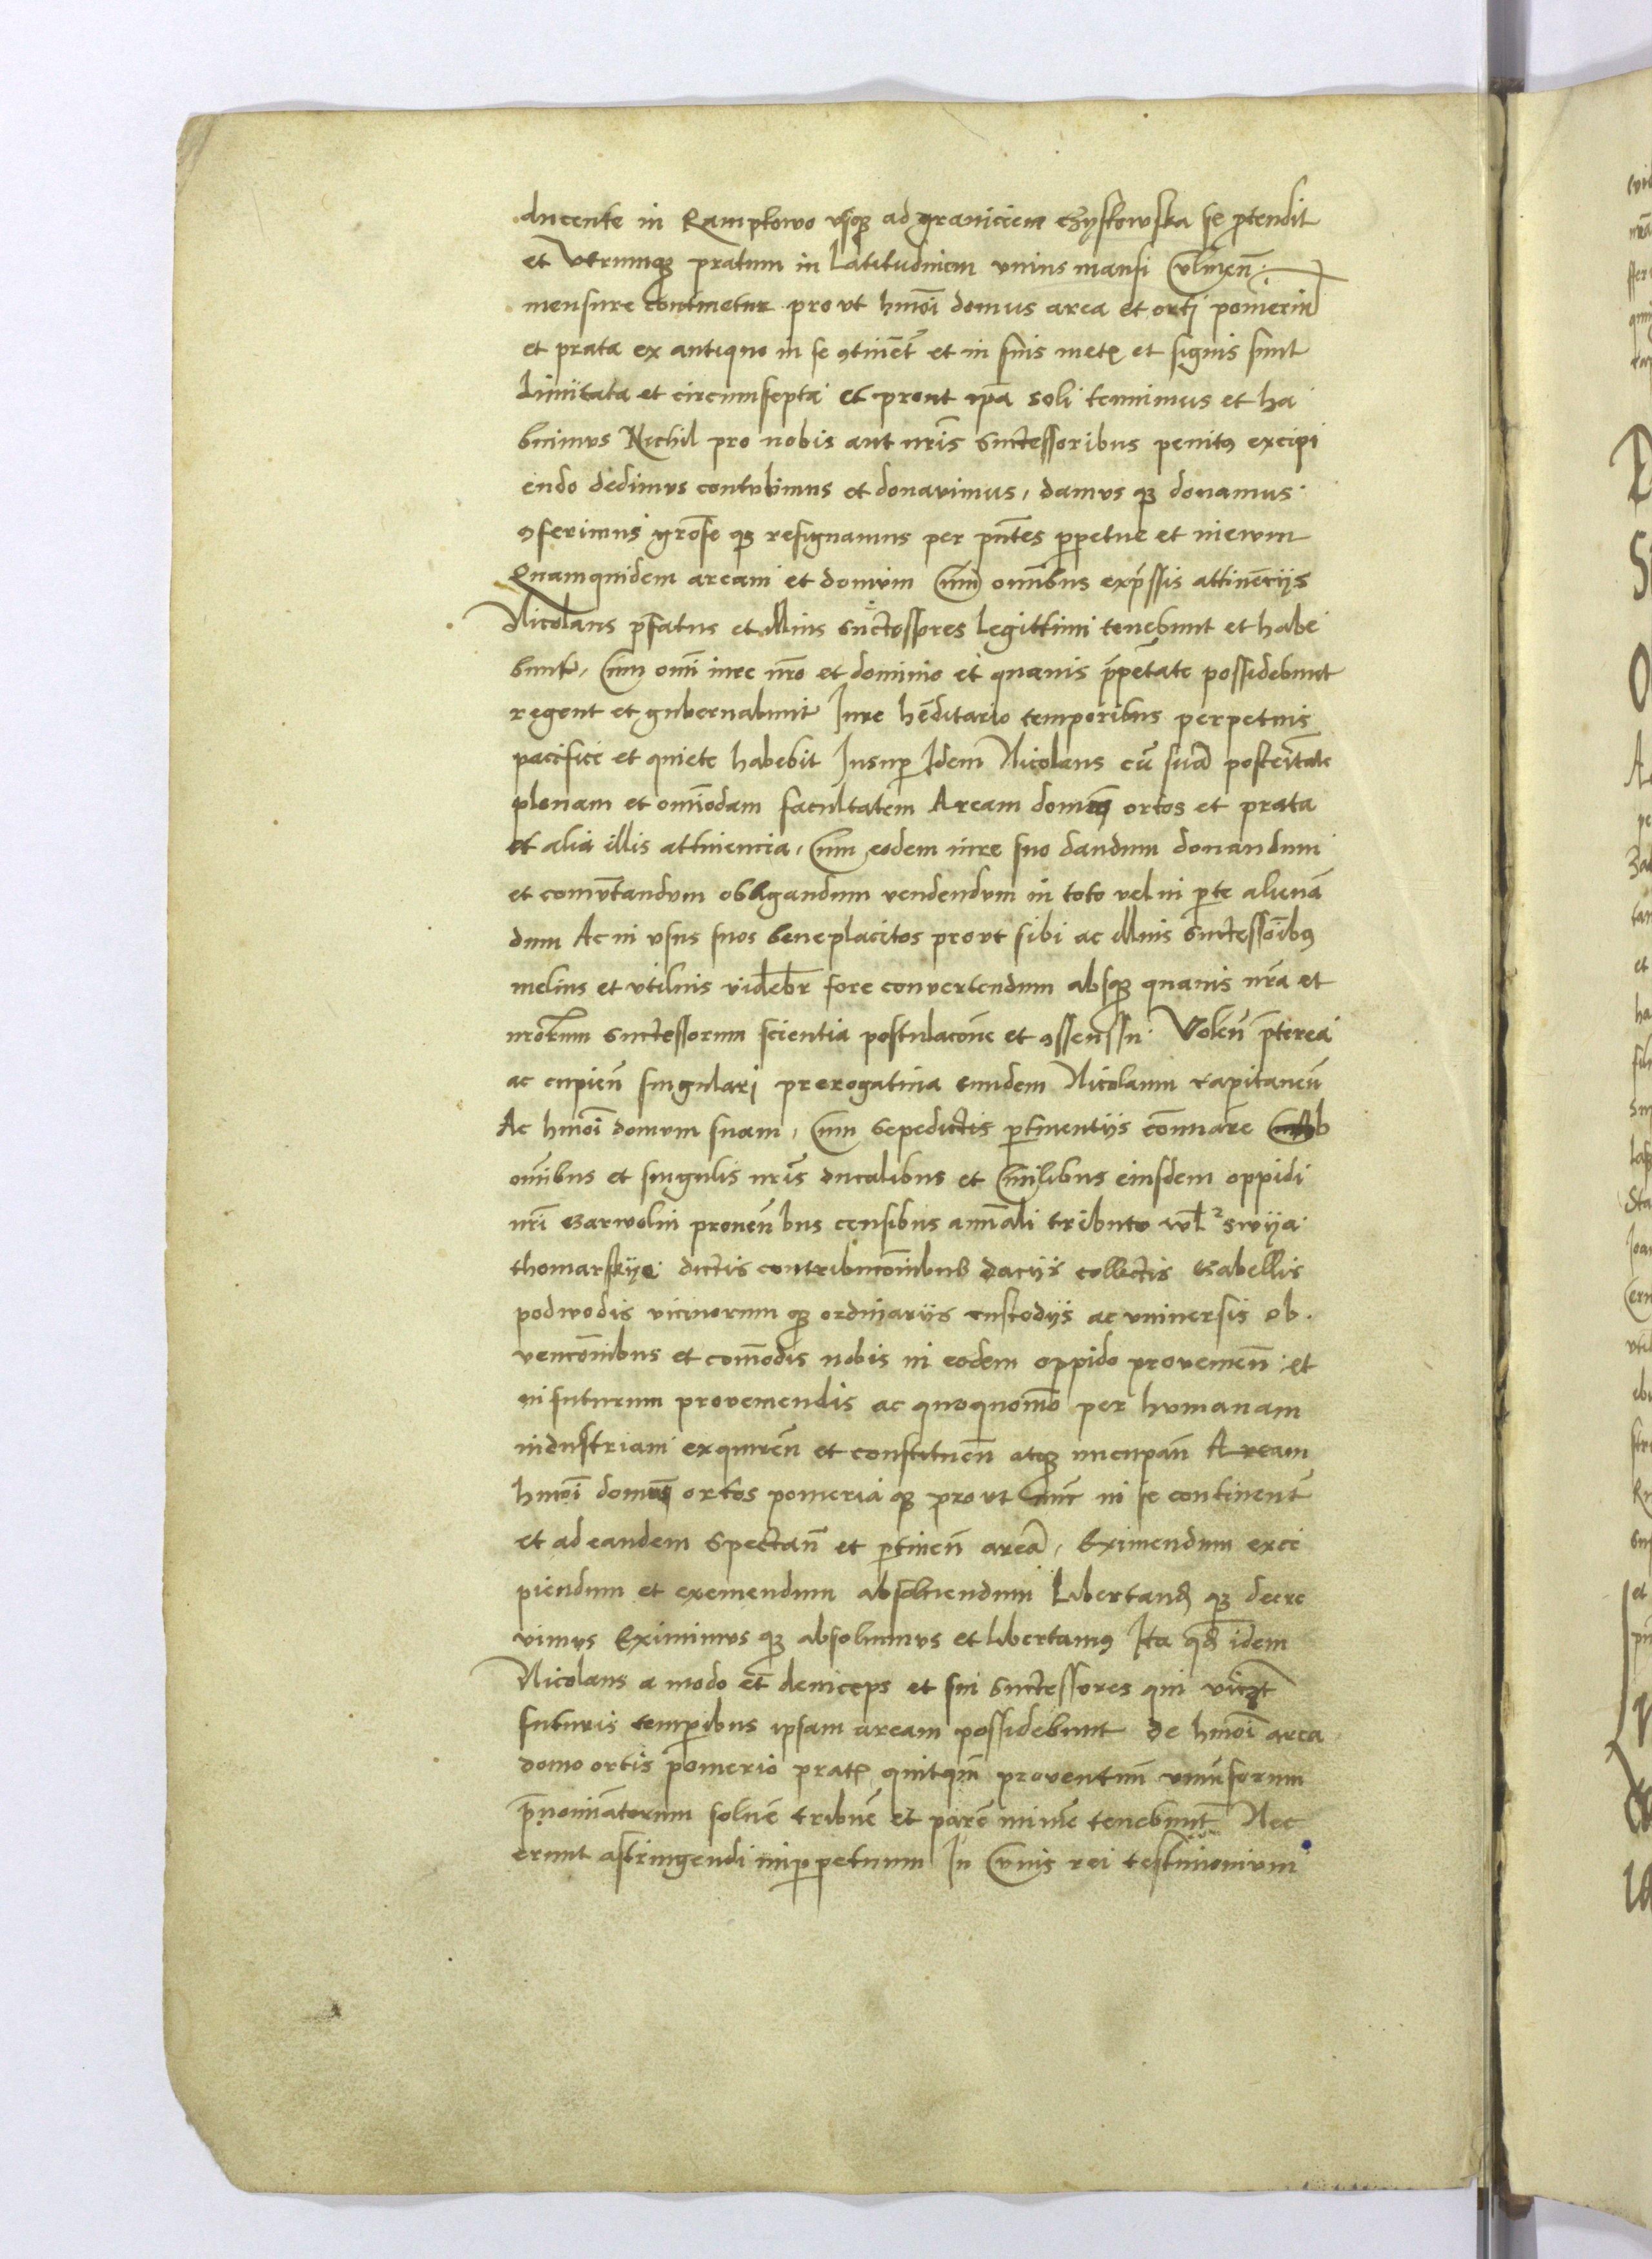 ducente in Ramplowo vsqz ad graniciem Chystowska se ptendit
et Vtrumqz pratum in Latitudinem vnius mansi Culmen̄
mensure continetur pro vt hmōi domus area et orti pomeria
et prata ex antiquo in se ꝯtinēt et in suis metꝭ et signis sunt
Limitata et circumsepta et prout ipā soli tenuimus et ha
buimus Nichil pro nobis aut nrīs Successoribus penitꝰ excipi
endo dedimus contulimus et donauimus, damus qz donamus
ꝯferimus grōse qz resignamus per pn̄tes ppetue et in ewm
Quamquidem aream et domum Cum omībus exp̄ssis attinēcijs
Nicolaus pfatus et illius Successores Legittimi tenebunt et habe
bunt, Cum omī iure nr̄o et dominio et quauis p̄petate possidebunt
regent et gubernabunt Iure hēditario temporibus perpetuis
pacifice et quiete habebit Insup Idem Nicolaus cū suā posteritate
plenam et omīodam facultatem Aream domū ortos et prata
et alia illis attinencia, Cum eodem iure suo dandum donandum
et comutandum obligandum vendendum in toto vel in pte alienā
dum Ac in vsus suos beneplacitos prout sibi ac illius Successoībꝰ
melius et vtilius videbr̄ fore convertendum absqz quauis nrā et
nrōrum Successorum scientia postulacōne et ꝯssenssu Volen̄ pterea
ac cupien̄ singulari prerogatiua eundem Nicolaum capitaneū
Ac hmōi domum suam, Cum Sepedictis ptinentijs cōmunāre ab
omībus et singulis nrīs ducalibus et Ciuilibus eiusdem oppidi
nrī Garwolin prouen̄bus censibus annuali tributo wl swija
thomarskye dictis contribucoībus dacijs collectis Gabellis
podwodis vicinorum qz ordinarijs custodijs ac vniuersis ob
vencōnibus et comōdis nobis in eodem oppido prouenien̄ et
in futurum proueniendis ac quoquomō per humanam
industriam exquiren̄ et constituen̄ atqz nucupan̄ Aream
hmōi domū ortos pomeria qz pro vt nūc in se continent
et ad eandem Spectan̄ et ptinen̄ areā, Eximendum exci
piendum et exemendum absoluendum Libertand̄ qz decre
uimus Eximimus qz absoluimus et libertamꝰ Ita qd̄ idem
Nicolaus a modo et deinceps et sui Successores qui
futuris temporibus ipsam aream possidebunt de hmōi area
domo ortis pomerio pratꝭ quitqm̄ prouentum vniūsorum
p̄nominatorum soluē tribuē et parē minīe tenebunt Nec
erunt astringendi imppetuum In Cuius rei testimonium